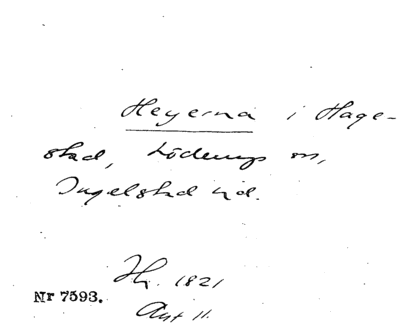 Heyerna i Hage-
stad, Löderups sn,
Ingelstad hd.
Hr. 1821
Nr 7593.
Akt 11.